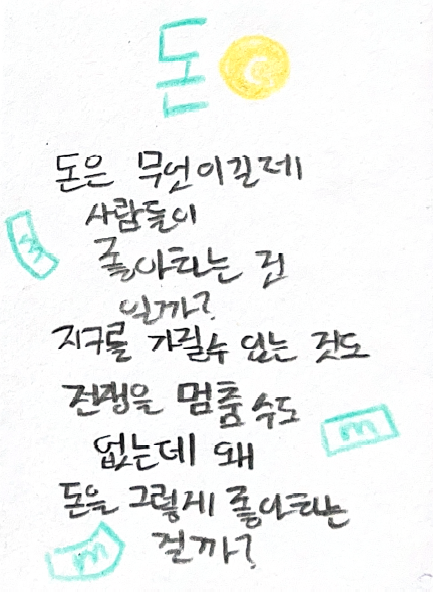 돈
돈은 무언이길제
사람들이
좋아하는 건
일까?
지구를 가질수 있는 것도
전쟁을 멈춤 수도
없는데 왜
돈을 그렇게 좋아하는
걸까?